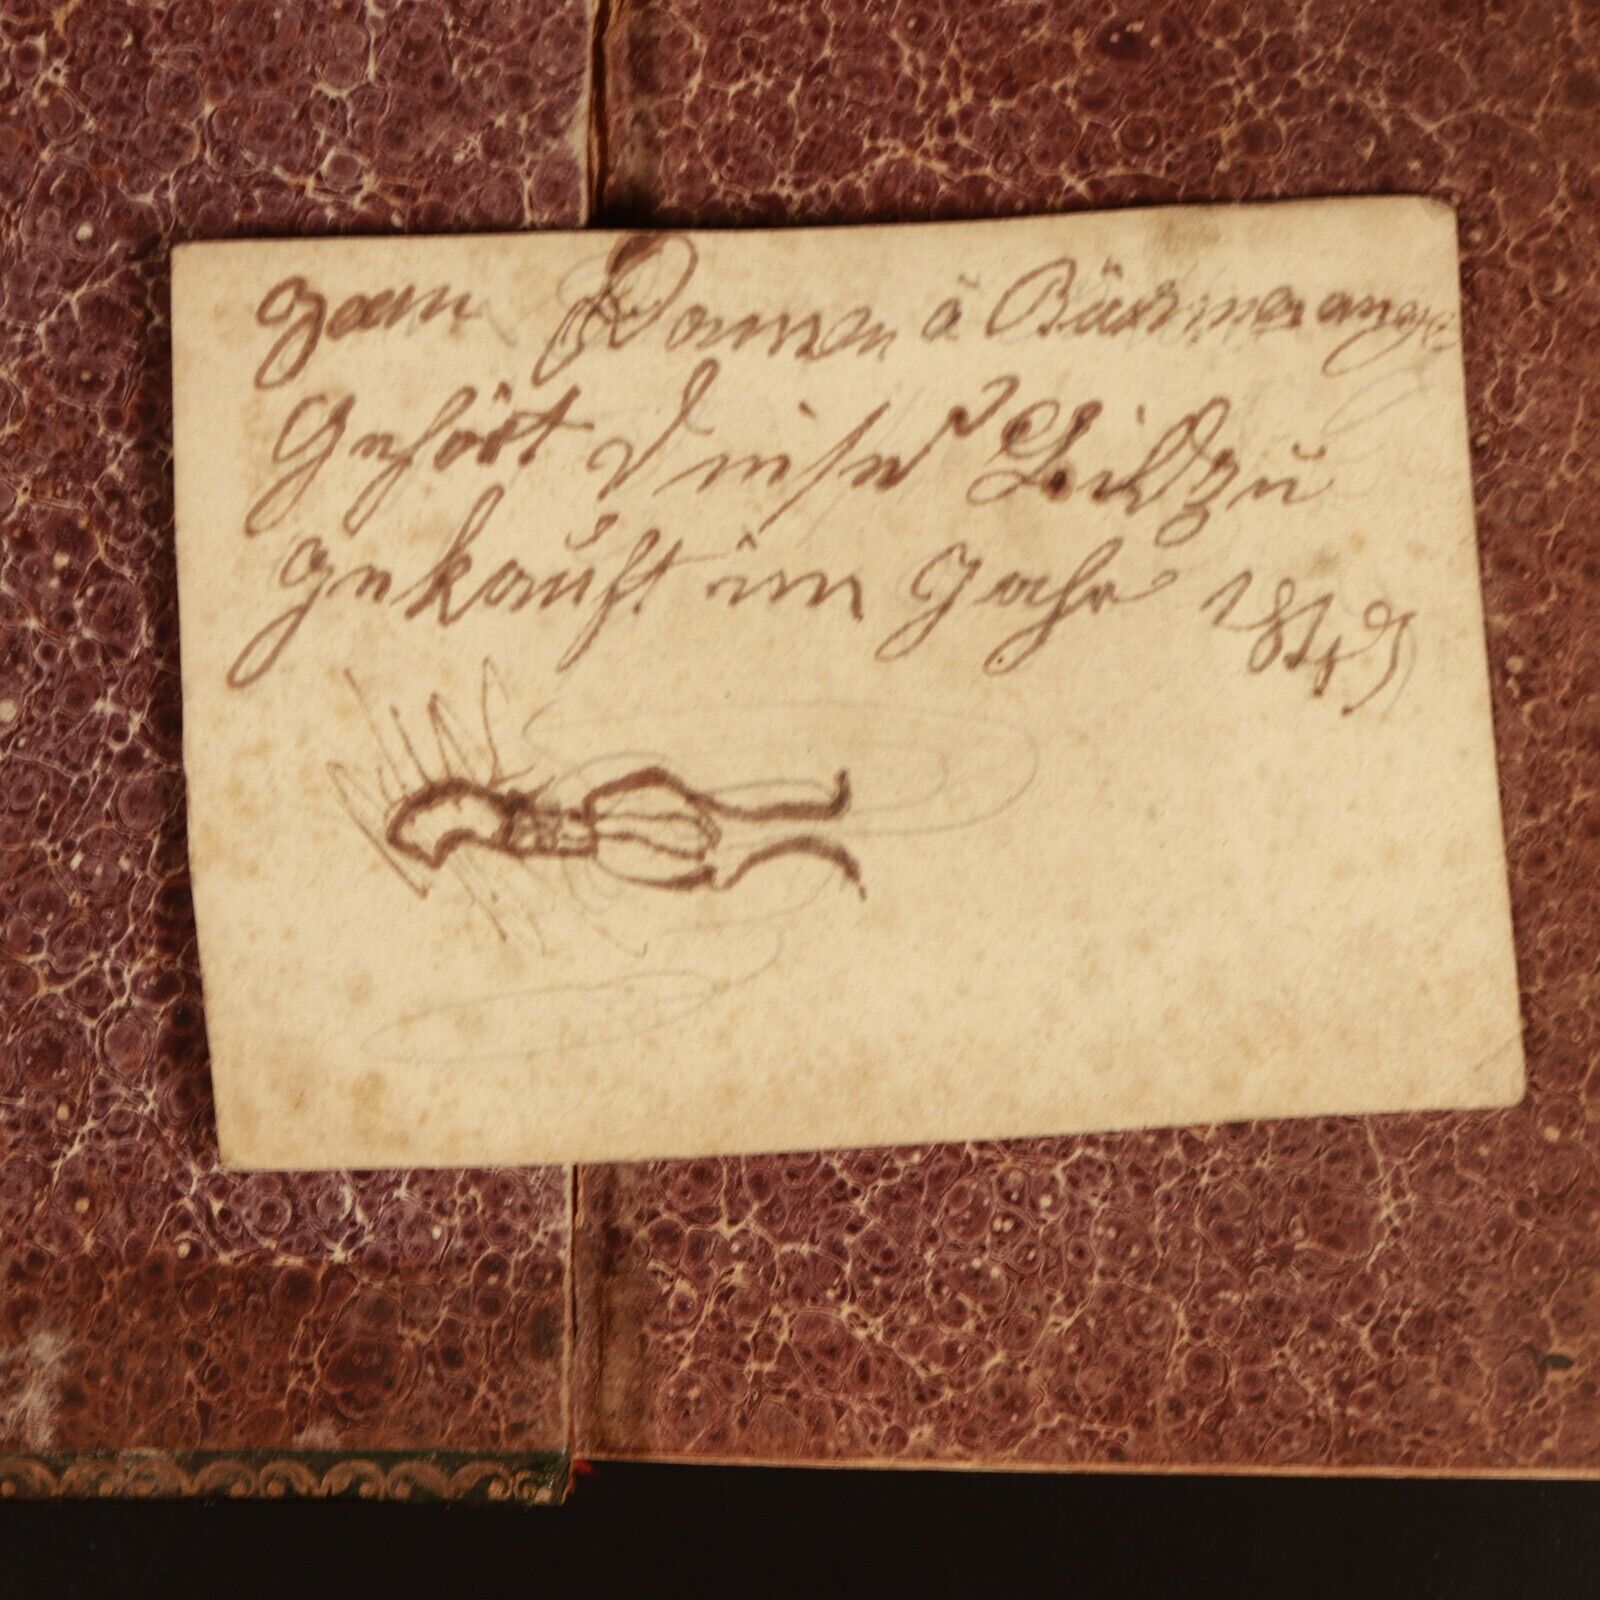 Jean Dannen à Bürmerange
Gehört dieser
gekauft im Jahr 1849